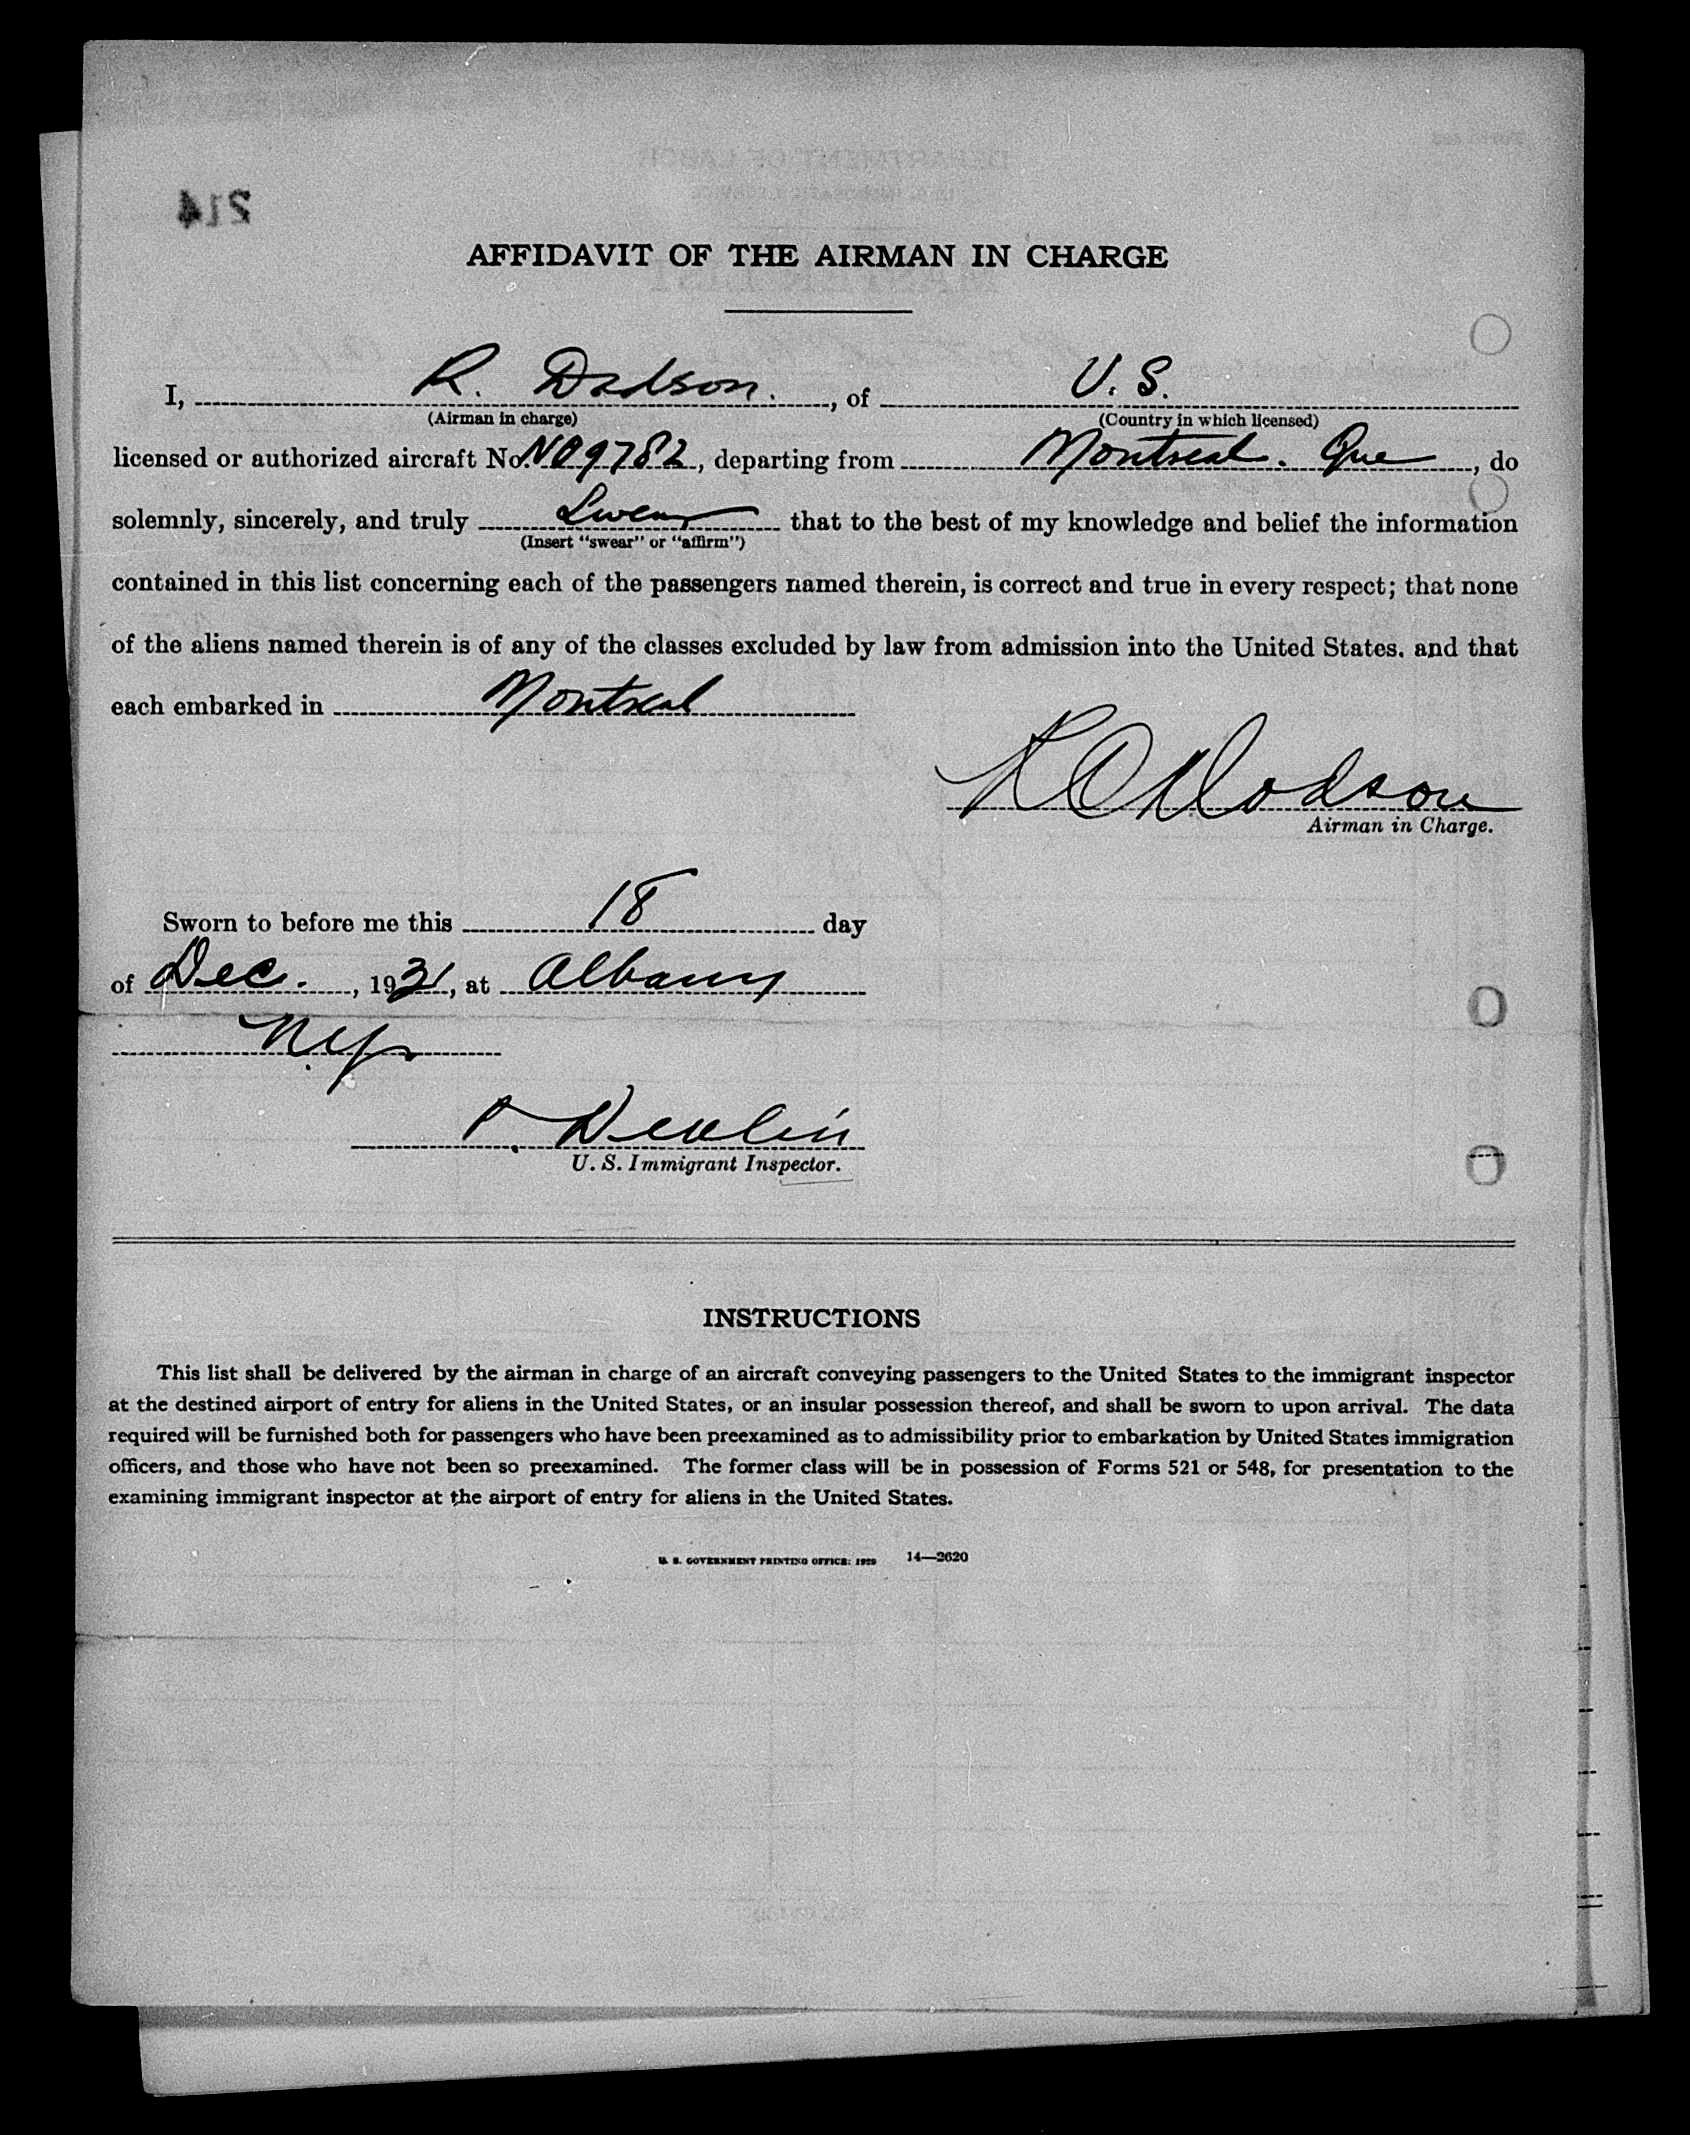 214
AFFIDAVIT OF THE AIRMAN IN CHARGE
I, R. Dodson., of U. S.
(Airman in charge) (Country in which licensed)
licensed or authorized aircraft No. NC9782, departing from Montreal. Que, do
solemnly, sincerely, and truly Swear that to the best of my knowledge and belief the information
(Insert "swear" or "affirm")
contained in this list concerning each of the passengers named therein, is correct and true in every respect; that none
of the aliens named therein is of any of the classes excluded by law from admission into the United States. and that
each embarked in Montreal
R C Dodson
Airman in Charge.
Sworn to before me this 18 day
of Dec., 1931, at Albany
N.Y.
P. Devlin
U. S. Immigrant Inspector.
INSTRUCTIONS
This list shall be delivered by the airman in charge of an aircraft conveying passengers to the United States to the immigrant inspector
at the destined airport of entry for aliens in the United States, or an insular possession thereof, and shall be sworn to upon arrival. The data
required will be furnished both for passengers who have been preexamined as to admissibility prior to embarkation by United States immigration
officers, and those who have not been so preexamined. The former class will be in possession of Forms 521 or 548, for presentation to the
examining immigrant inspector at the airport of entry for aliens in the United States.
U. S. GOVERNMENT PRINTING OFFICE: 1929 14—2620